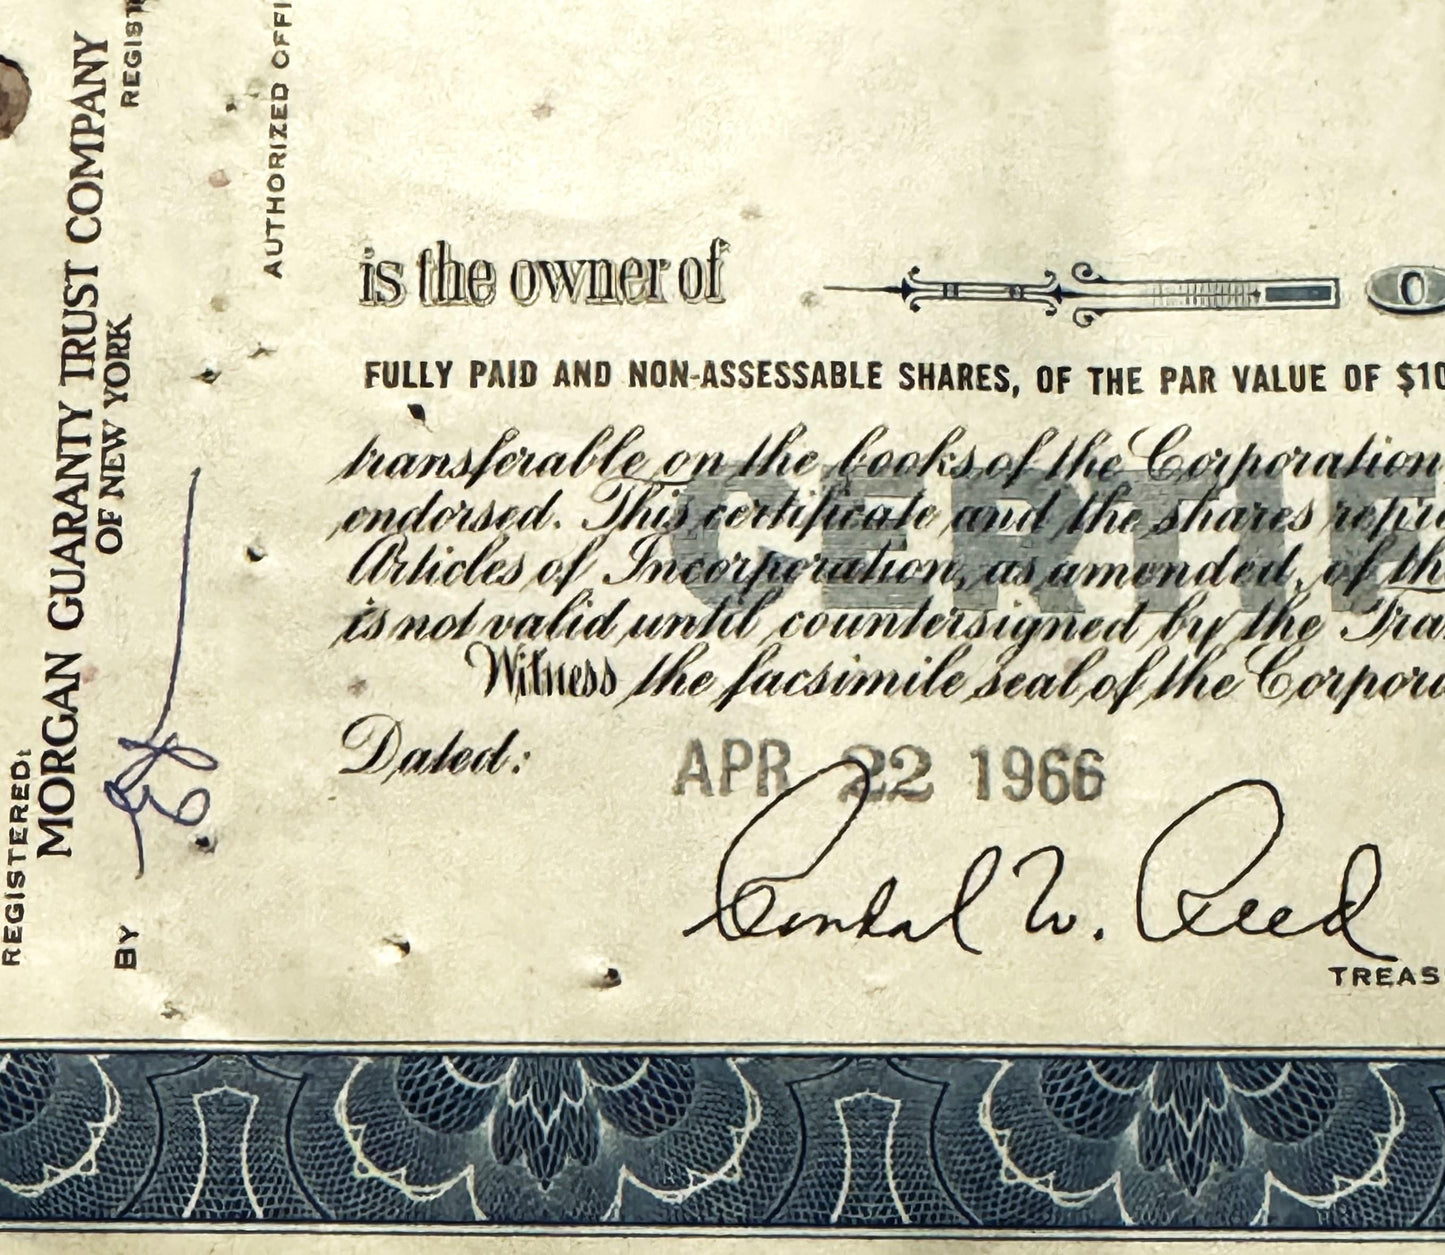 REGISTERED:
MORGAN GUARANTY TRUST COMPANY
OF NEW YORK
BY
AUTHORIZED
is the owner of
FULLY PAID AND NON-ASSESSABLE SHARES, OF THE PAR VALUE OF $10
transferable on the books of the Corporation
endorsed. This certificate and the shares
Articles of Incorporation, as amended, of
is not valid until countersigned by the
Witness the facsimile seal of the
Dated: APR 22 1966
W. Reed